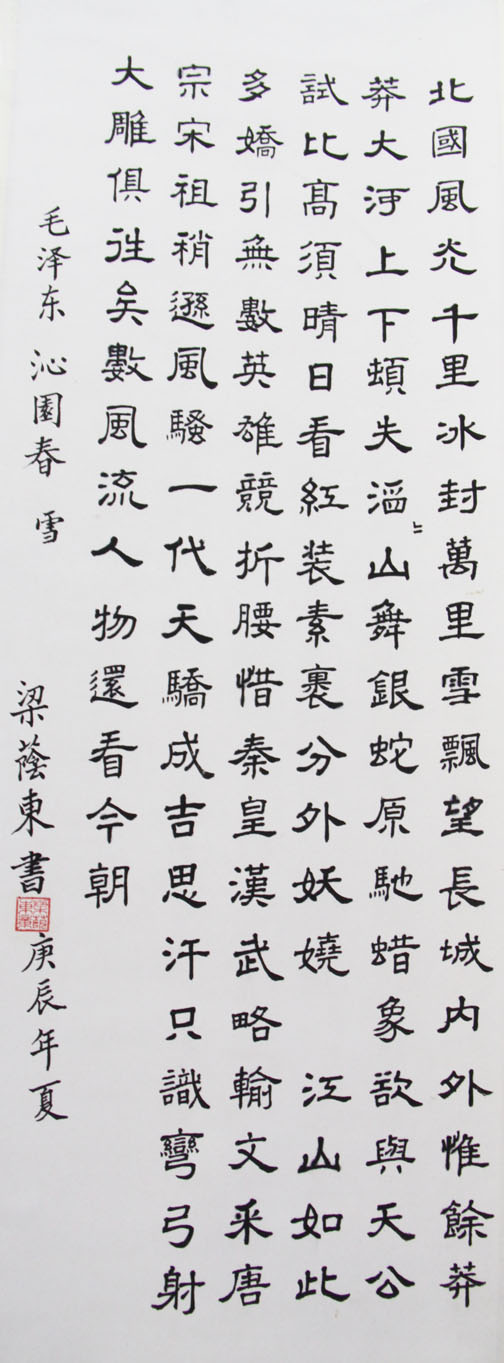 北國風光千里冰封萬里雪飄望長城内外惟餘莽
莽大河上下頓失滔〻山舞銀蛇原馳蜡象欲與天公
試比髙須晴日看紅装素裹分外妖嬈 江山如此
多嬌引無數英雄競折腰惜秦皇漢武略輸文采唐
宗宋祖稍遜風騷一代天驕成吉思汗只識彎弓射
大雕俱往矣數風流人物還看今朝
毛泽东 沁園春 雪
梁蔭東書 庚辰年夏